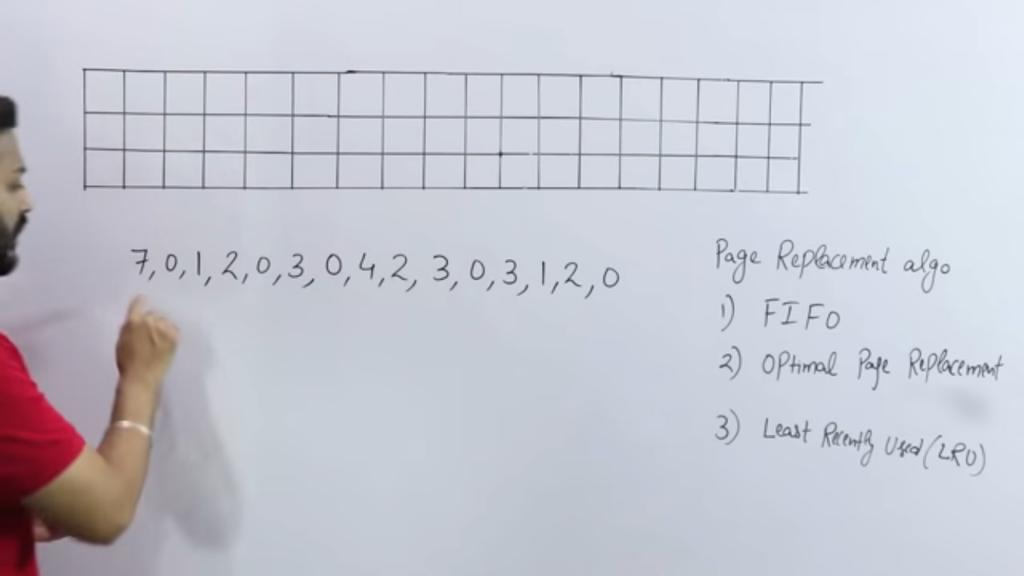 7,0,1,2,0,3,0,4,2,3,0,3,1,2,0
Page Replacement algo
1) FIFO
2) Optimal Page Replacement
3) Least Recently Used (LRU)